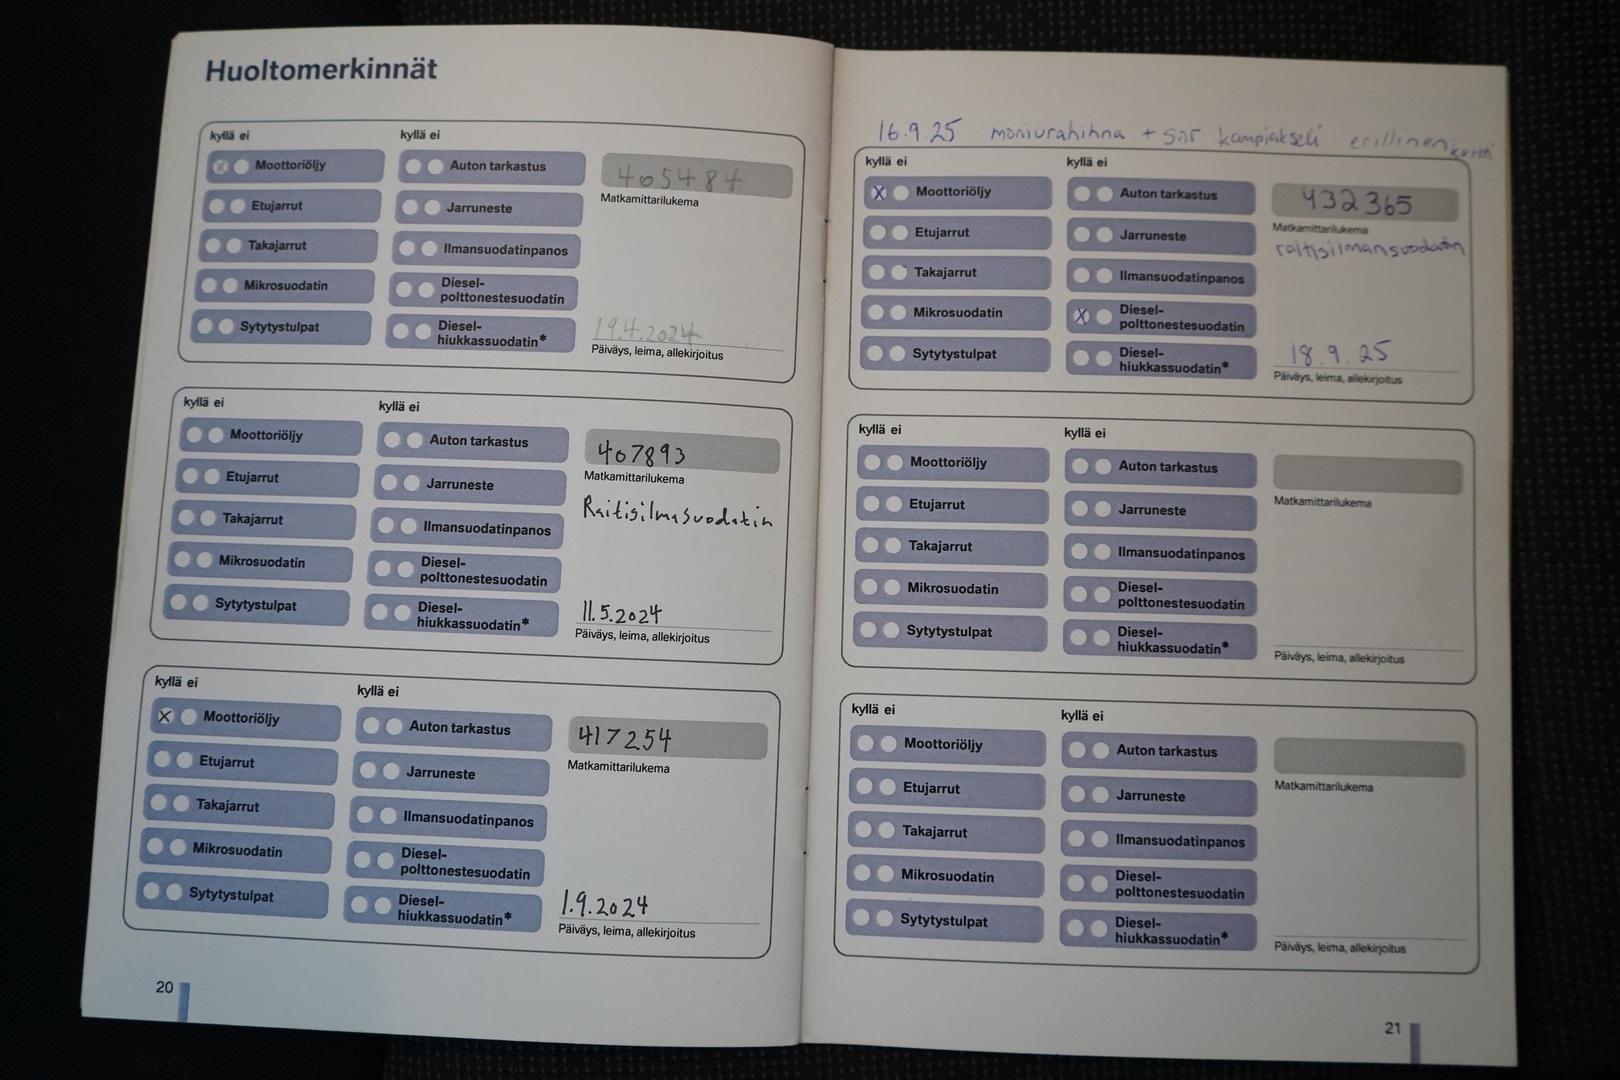 Huoltomerkinnät
kyllä ei
kyllä ei
Moottoriöljy
Auton tarkastus
405484
Matkamittarilukema
Etujarrut
Jarruneste
Takajarrut
Ilmansuodatinpanos
Mikrosuodatin
Diesel-
polttonestesuodatin
Sytytystulpat
Diesel-
hiukkassuodatin*
19.4.2024
Päiväys, leima, allekirjoitus
kyllä ei
kyllä ei
Moottoriöljy
Auton tarkastus
407893
Matkamittarilukema
Etujarrut
Jarruneste
Raitisilmasuodatin
Takajarrut
Ilmansuodatinpanos
Mikrosuodatin
Diesel-
polttonestesuodatin
Sytytystulpat
Diesel-
hiukkassuodatin*
11.5.2024
Päiväys, leima, allekirjoitus
kyllä ei
kyllä ei
X Moottoriöljy
Auton tarkastus
417254
Matkamittarilukema
Etujarrut
Jarruneste
Takajarrut
Ilmansuodatinpanos
Mikrosuodatin
Diesel-
polttonestesuodatin
Sytytystulpat
Diesel-
hiukkassuodatin*
1.9.2024
Päiväys, leima, allekirjoitus
20
16.9.25 moniurahihna + kampiakseli erillinen
kyllä ei
kyllä ei
X Moottoriöljy
Auton tarkastus
432365
Matkamittarilukema
raitisilmansuodatin
Etujarrut
Jarruneste
Takajarrut
Ilmansuodatinpanos
Mikrosuodatin
X Diesel-
polttonestesuodatin
Sytytystulpat
Diesel-
hiukkassuodatin*
18.9.25
Päiväys, leima, allekirjoitus
kyllä ei
kyllä ei
Moottoriöljy
Auton tarkastus
Matkamittarilukema
Etujarrut
Jarruneste
Takajarrut
Ilmansuodatinpanos
Mikrosuodatin
Diesel-
polttonestesuodatin
Sytytystulpat
Diesel-
hiukkassuodatin*
Päiväys, leima, allekirjoitus
kyllä ei
kyllä ei
Moottoriöljy
Auton tarkastus
Matkamittarilukema
Etujarrut
Jarruneste
Takajarrut
Ilmansuodatinpanos
Mikrosuodatin
Diesel-
polttonestesuodatin
Sytytystulpat
Diesel-
hiukkassuodatin*
Päiväys, leima, allekirjoitus
21